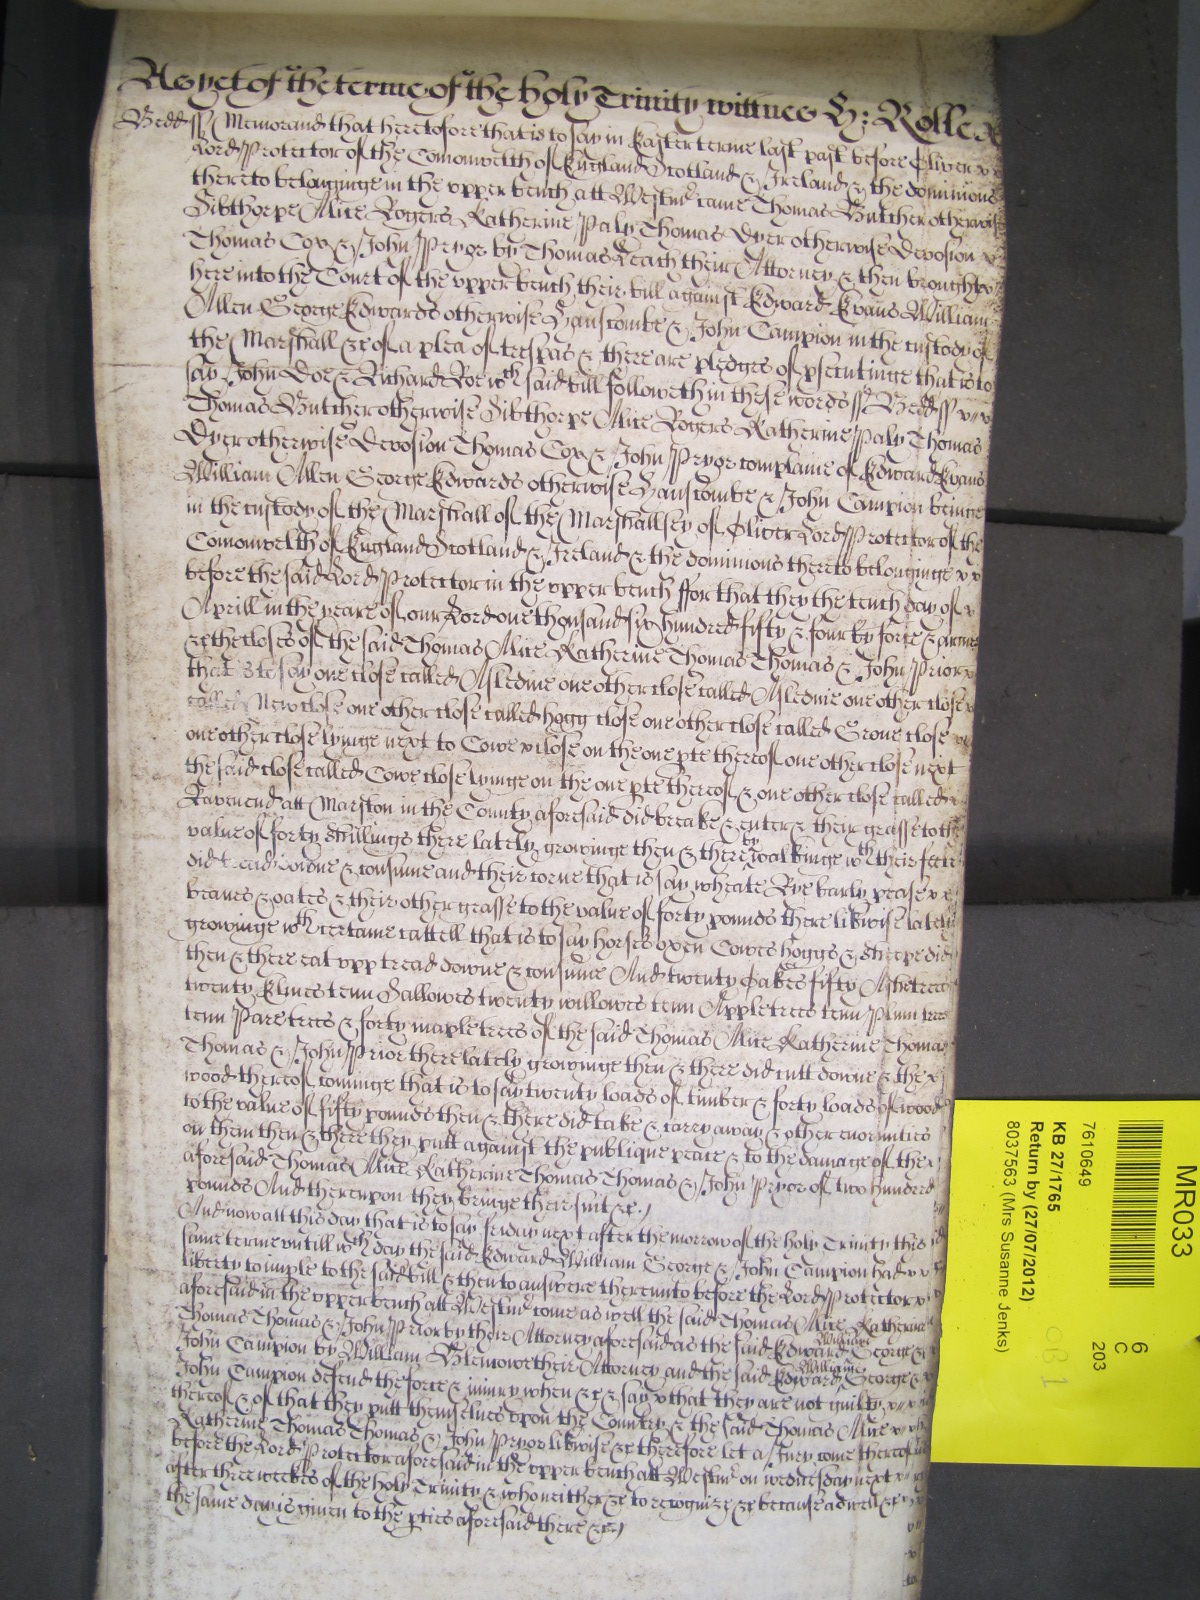 As yet of the terme of the holy Trinity wittnes H: Rolle
Bedd ss Memorand that heretofore that is to say in Easter terme last past before Oliver
Lord Protector of the Comonwelth of England Scotland & Ireland & the dominions
thereto belonginge in the upper bench att Westmr came Thomas Butcher otherwise
Sibthorpe Alice Rogers Katherine Paly Thomas Dyer otherwise Deposion
Thomas Cox & John Pryor by Thomas Leach their Attorney & then brought
here into the Court of the upper bench their bill against Edward Evans William
Allen George Edwards otherwise Hanscombe & John Campion in the custody of
the Marshall &c of a plea of trespas & there are pledges of psecutinge that is to
say John Doe & Richard Roe wch said bill followeth in these words ss Bedd ss
Thomas Butcher otherwise Sibthorpe Alice Rogers Katherine Paly Thomas
Dyer otherwise Deposion Thomas Cox & John Pryor complaine of Edward Evans
William Allen George Edwards otherwise Hanscombe & John Campion beinge
in the custody of the Marshall of the Marshallsey of Oliver Lord Protector of the
Comonwelth of England Scotland & Ireland & the dominions thereto belonginge
before the said Lord Protector in the upper bench ffor that they the tenth day of
Aprill in the yeare of our Lord one thousand six hundred fifty & four by force & armes
&c the closes of the said Thomas Alice Katherine Thomas Thomas & John Prior
that is to say one close called Asledine one other close called Asledine one other close
called New close one other close called hogg close one other close called Grove close
one other close lyinge next to Cowe close on the one pte thereof one other close next
the said close called Cowe close lyinge on the one pte thereof & one other close called
Ravenend att Marston in the County aforesaid did breake & enter & their grasse to the
value of forty shillings there lately growinge then & there by walkinge wth their feete
did tread downe & consume and their corne that is say wheate Rye barly pease
beanes & oates & their other grasse to the value of forty pounds there likwise lately
growinge wth certaine cattell that is to say horses oxen Cowes hoggs & sheepe did
then & there eat upp tread downe & consume And twenty Oakes fifty Ashetrees
twenty Elmes tenn Sallowes twenty willowes tenn Appletrees tenn Plum trees
tenn Paretrees & forty mapletrees of the said Thomas Alice Katherine Thomas
Thomas & John Prior there lately growinge then & there did cutt downe & the
wood thereof cominge that is to say twenty loads of timber & forty loads of wood
to the value of fifty pounds then & there did take & carry away & other enormities
on them then & there they putt against the publique peace & to the damage of the
aforesaid Thomas Alice Katherine Thomas Thomas & John Pryor of two hundred
pounds And thereupon they bringe their suit &c.
And now att this day that is to say friday next after the morrow of the holy Trinity this
same terme untill wch day the said Edward William George & John Campion had
liberty to imple to the said bill & then to answere thereunto before the Lord Protector
aforesaid in the upper bench att Westmr come as well the said Thomas Alice Katherine
Thomas Thomas & John Prior by their Attorney aforesaid as the said Edward William George &
John Campion by William their Attorney and the said Edward William George &
John Campion defend the force & iniury when &c & say that they are not guilty
thereof & of that they putt themselves upon the Country & the said Thomas Alice
Katherine Thomas Thomas & John Pryor likwise &c therefore let a Jury come thereof
before the Lord Protector aforesaid in the upper bench att Westmr on wednesday next
after three weekes of the holy Trinity & who neither &c to recognize &c because aswell &c
the same day is given to the pties aforesaid there &c
MR033
7610649
6
C
203
KB 27/1765
Return by (27/07/2012)
8037563 (Mrs Susanne Jenks)